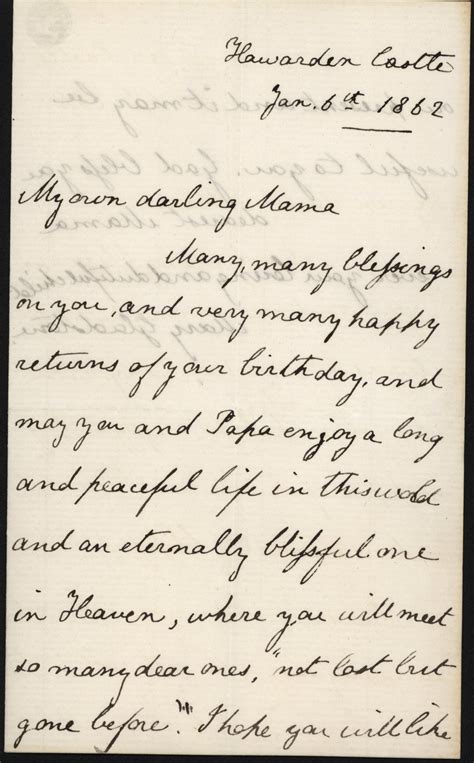 Hawarden Castle
Jan. 6th 1862
My own darling Mama
Many, many blessings
on you, and very many happy
returns of your birthday, and
may you and Papa enjoy a long
and peaceful life in this wold
and an eternally blissful one
in Heaven, where you will meet
so many dear ones, "not lost but
gone before". I hope you will like